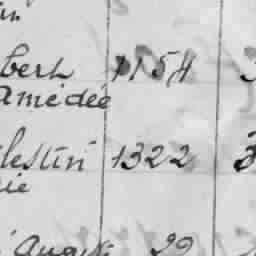 bert 1154
Amédée
lestin 1322 3
ie
August 29